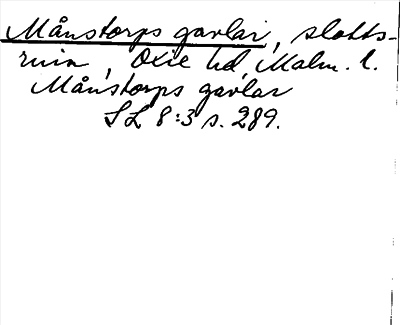 Månstorps gavlar, slotts-
ruin, Oxie hd, Malm. l.
Månstorps gavlar
SL 8:3 s. 289.